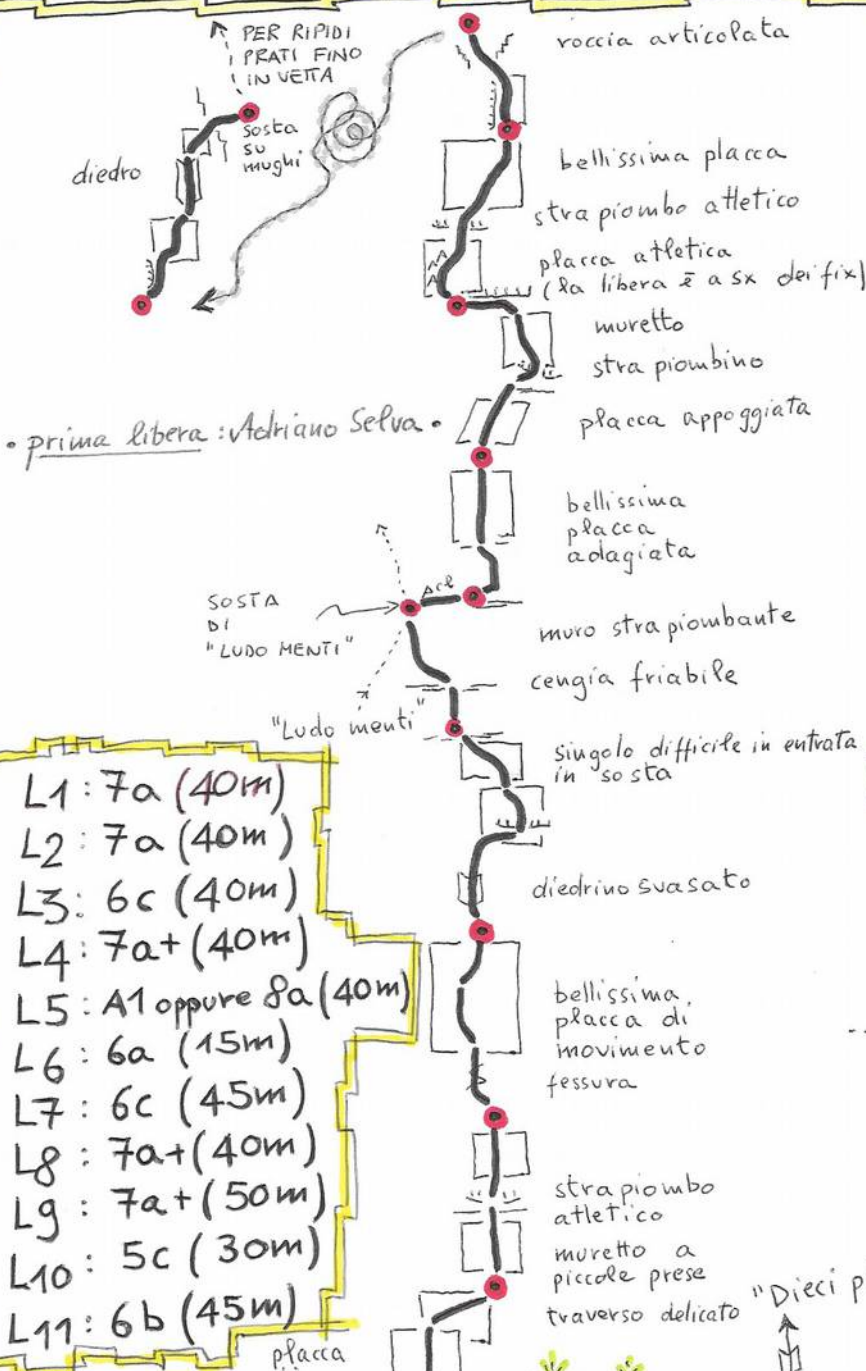 PER RIPIDI
PRATI FINO
IN VETTA
sosta
su
mughi
diedro
roccia articolata
bellissima placca
strapiombo atletico
placca atletica
(la libera è a sx dei fix)
muretto
strapiombino
placca appoggiata
• prima libera : Adriano Selva •
bellissima
placca
adagiata
SOSTA
DI
"LUDO MENTI"
muro strapiombante
cengia friabile
"Ludo menti"
singolo difficile in entrata
in sosta
diedrino svasato
bellissima
placca di
movimento
fessura
strapiombo
atletico
muretto a
piccole prese
traverso delicato
"Dieci p
placca
L1 : 7a (40m)
L2 : 7a (40m)
L3 : 6c (40m)
L4 : 7a+ (40m)
L5 : A1 oppure 8a (40m)
L6 : 6a (15m)
L7 : 6c (45m)
L8 : 7a+ (40m)
L9 : 7a+ (50m)
L10 : 5c (30m)
L11 : 6b (45m)